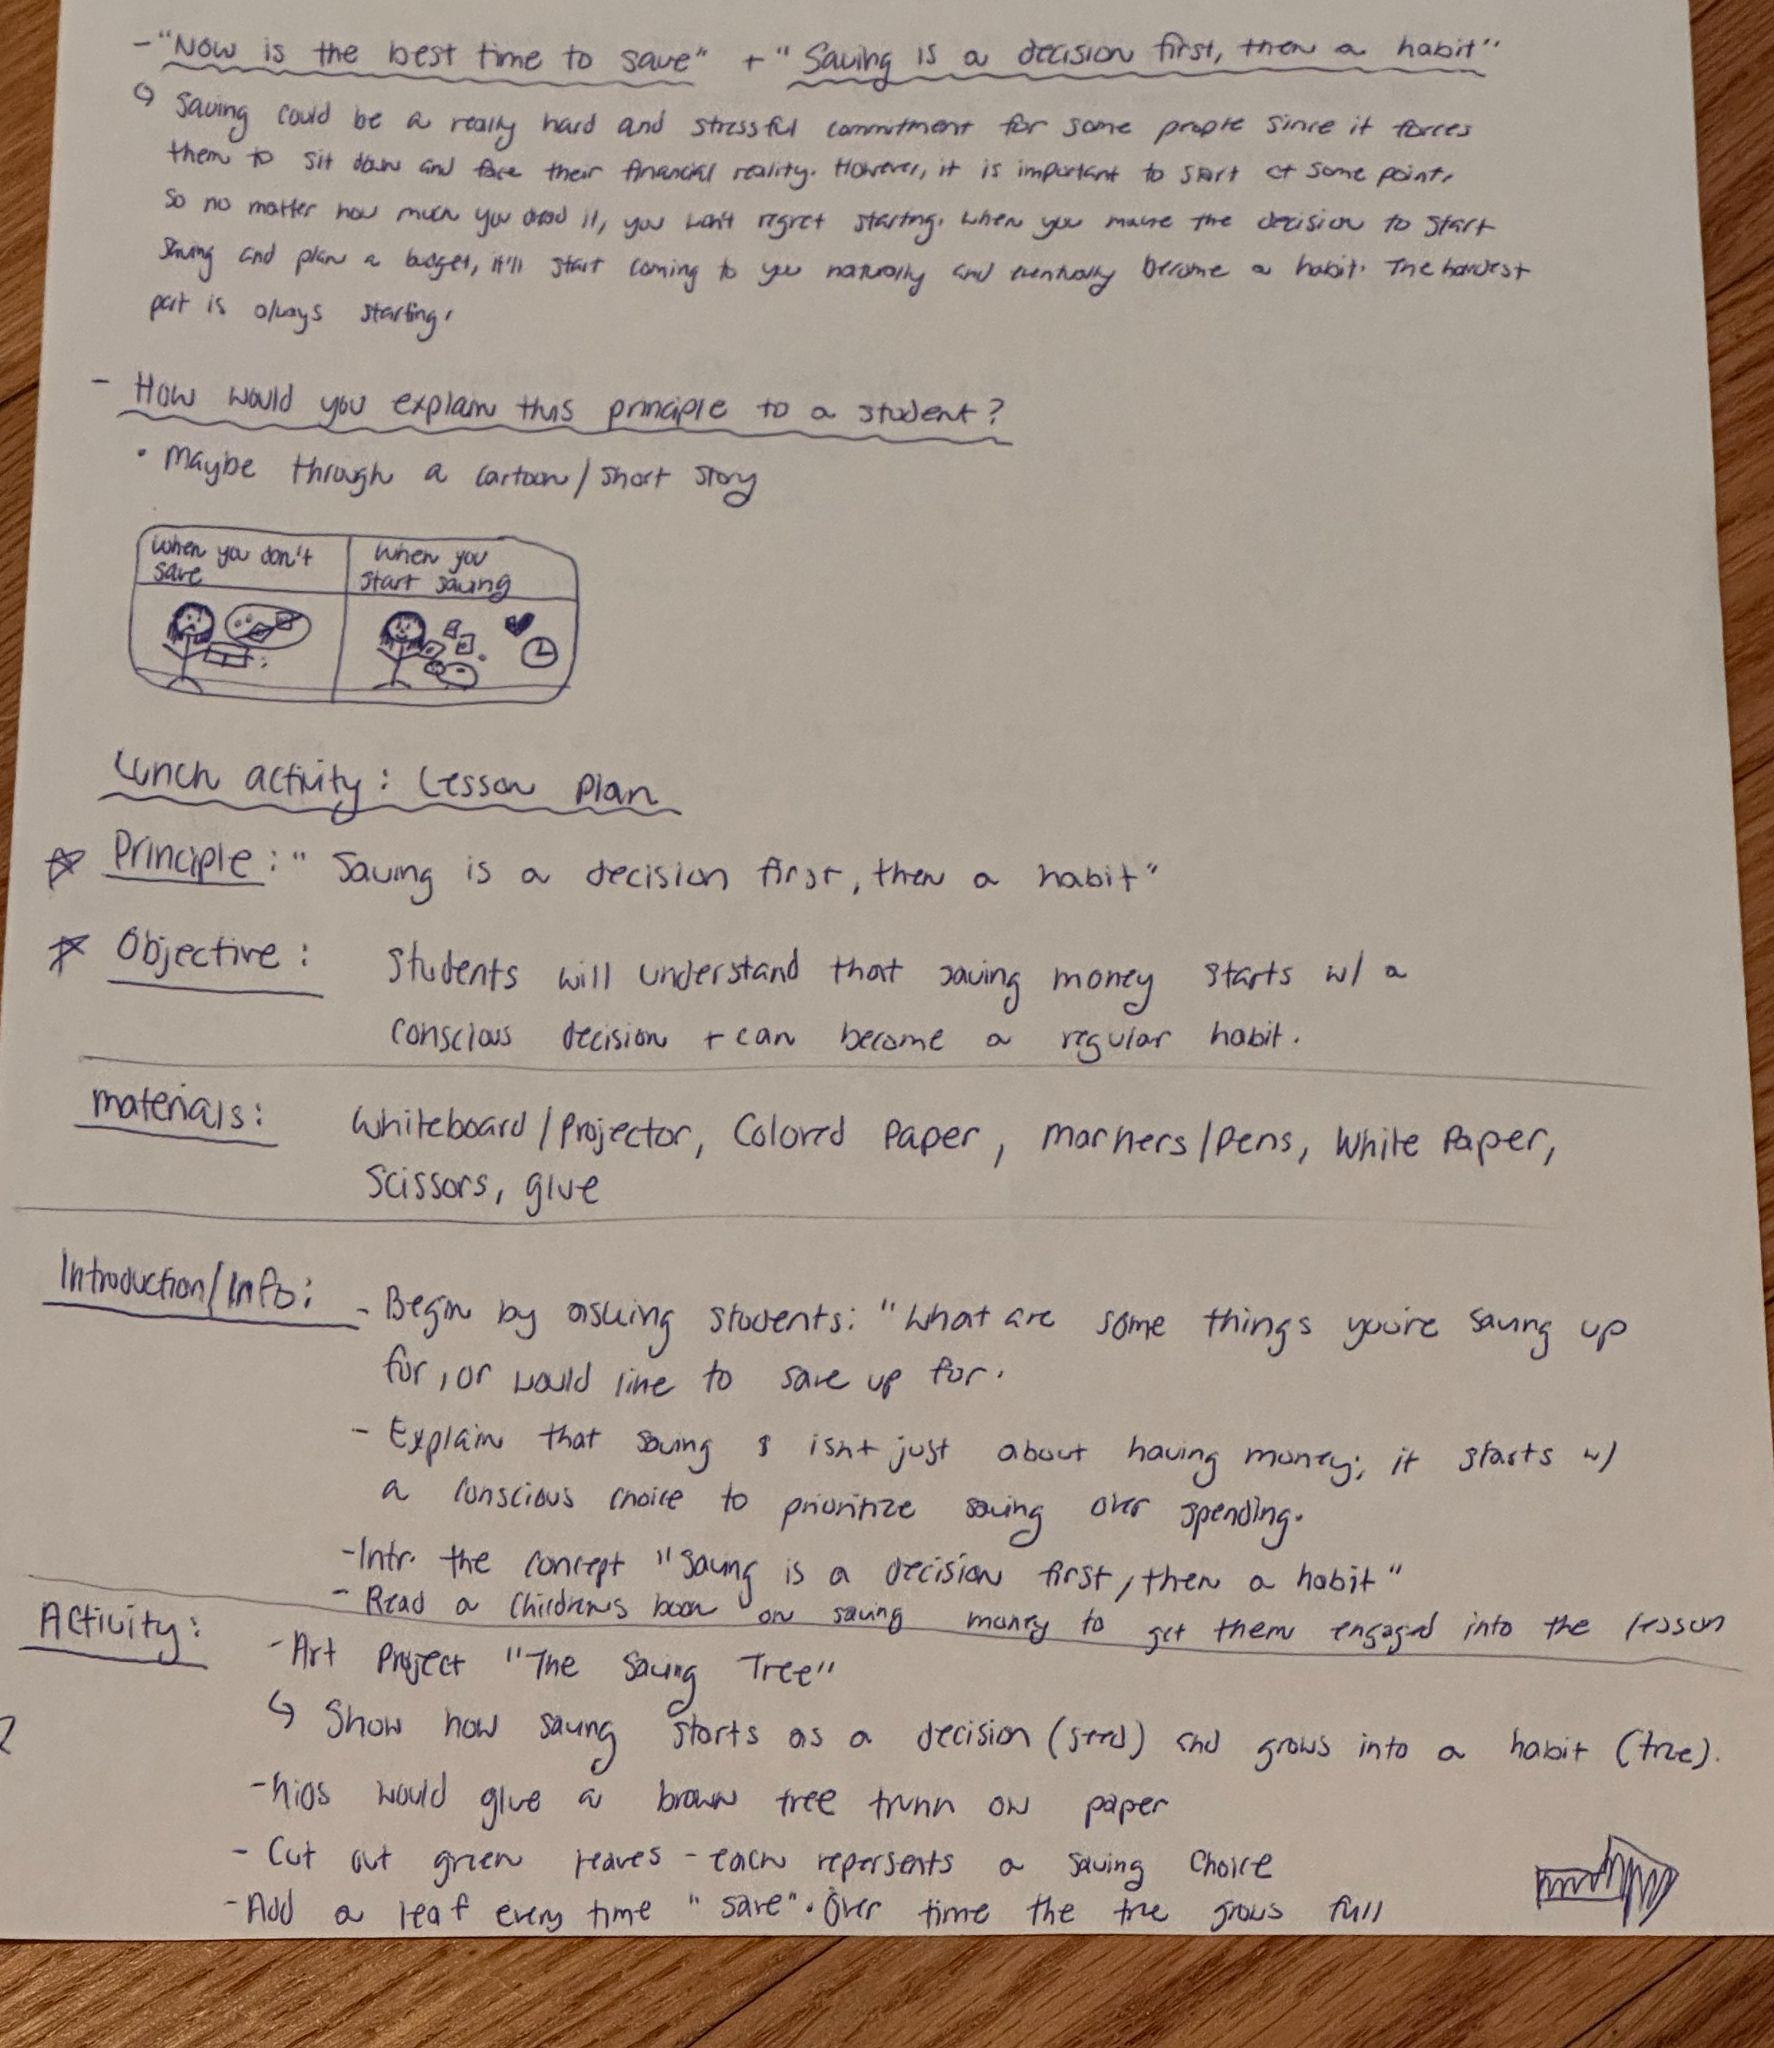 - "Now is the best time to save" + "Saving is a decision first, then a habit"
↳ Saving could be a really hard and stressful commitment for some people since it forces
them to sit down and face their financial reality. However, it is important to start at some point,
so no matter how much you dread it, you won't regret starting. When you make the decision to start
saving and plan a budget, it'll start coming to you naturally and eventually become a habit. The hardest
part is always starting.
- How would you explain this principle to a student?
• Maybe through a cartoon/short story
When you don't
save
When you
start saving
Lunch activity: Lesson Plan
☆ Principle: "Saving is a decision first, then a habit"
☆ Objective: Students will understand that saving money starts w/ a
conscious decision + can become a regular habit.
Materials: Whiteboard/Projector, Colored Paper, Markers/Pens, White Paper,
Scissors, glue
Introduction/Info: - Begin by asking students: "What are some things you're saving up
for, or would like to save up for.
- Explain that saving isnt just about having money; it starts w/
a conscious choice to prioritize saving over spending.
- Intr. the concept "Saving is a decision first, then a habit"
- Read a Childrens book on saving money to get them engaged into the lesson
Activity: - Art Project "The Saving Tree"
↳ Show how saving starts as a decision (seed) and grows into a habit (tree).
- kids would glue a brown tree trunk on paper
- Cut out green leaves - each repersents a saving choice
- Add a leaf every time "save". Over time the tree grows full